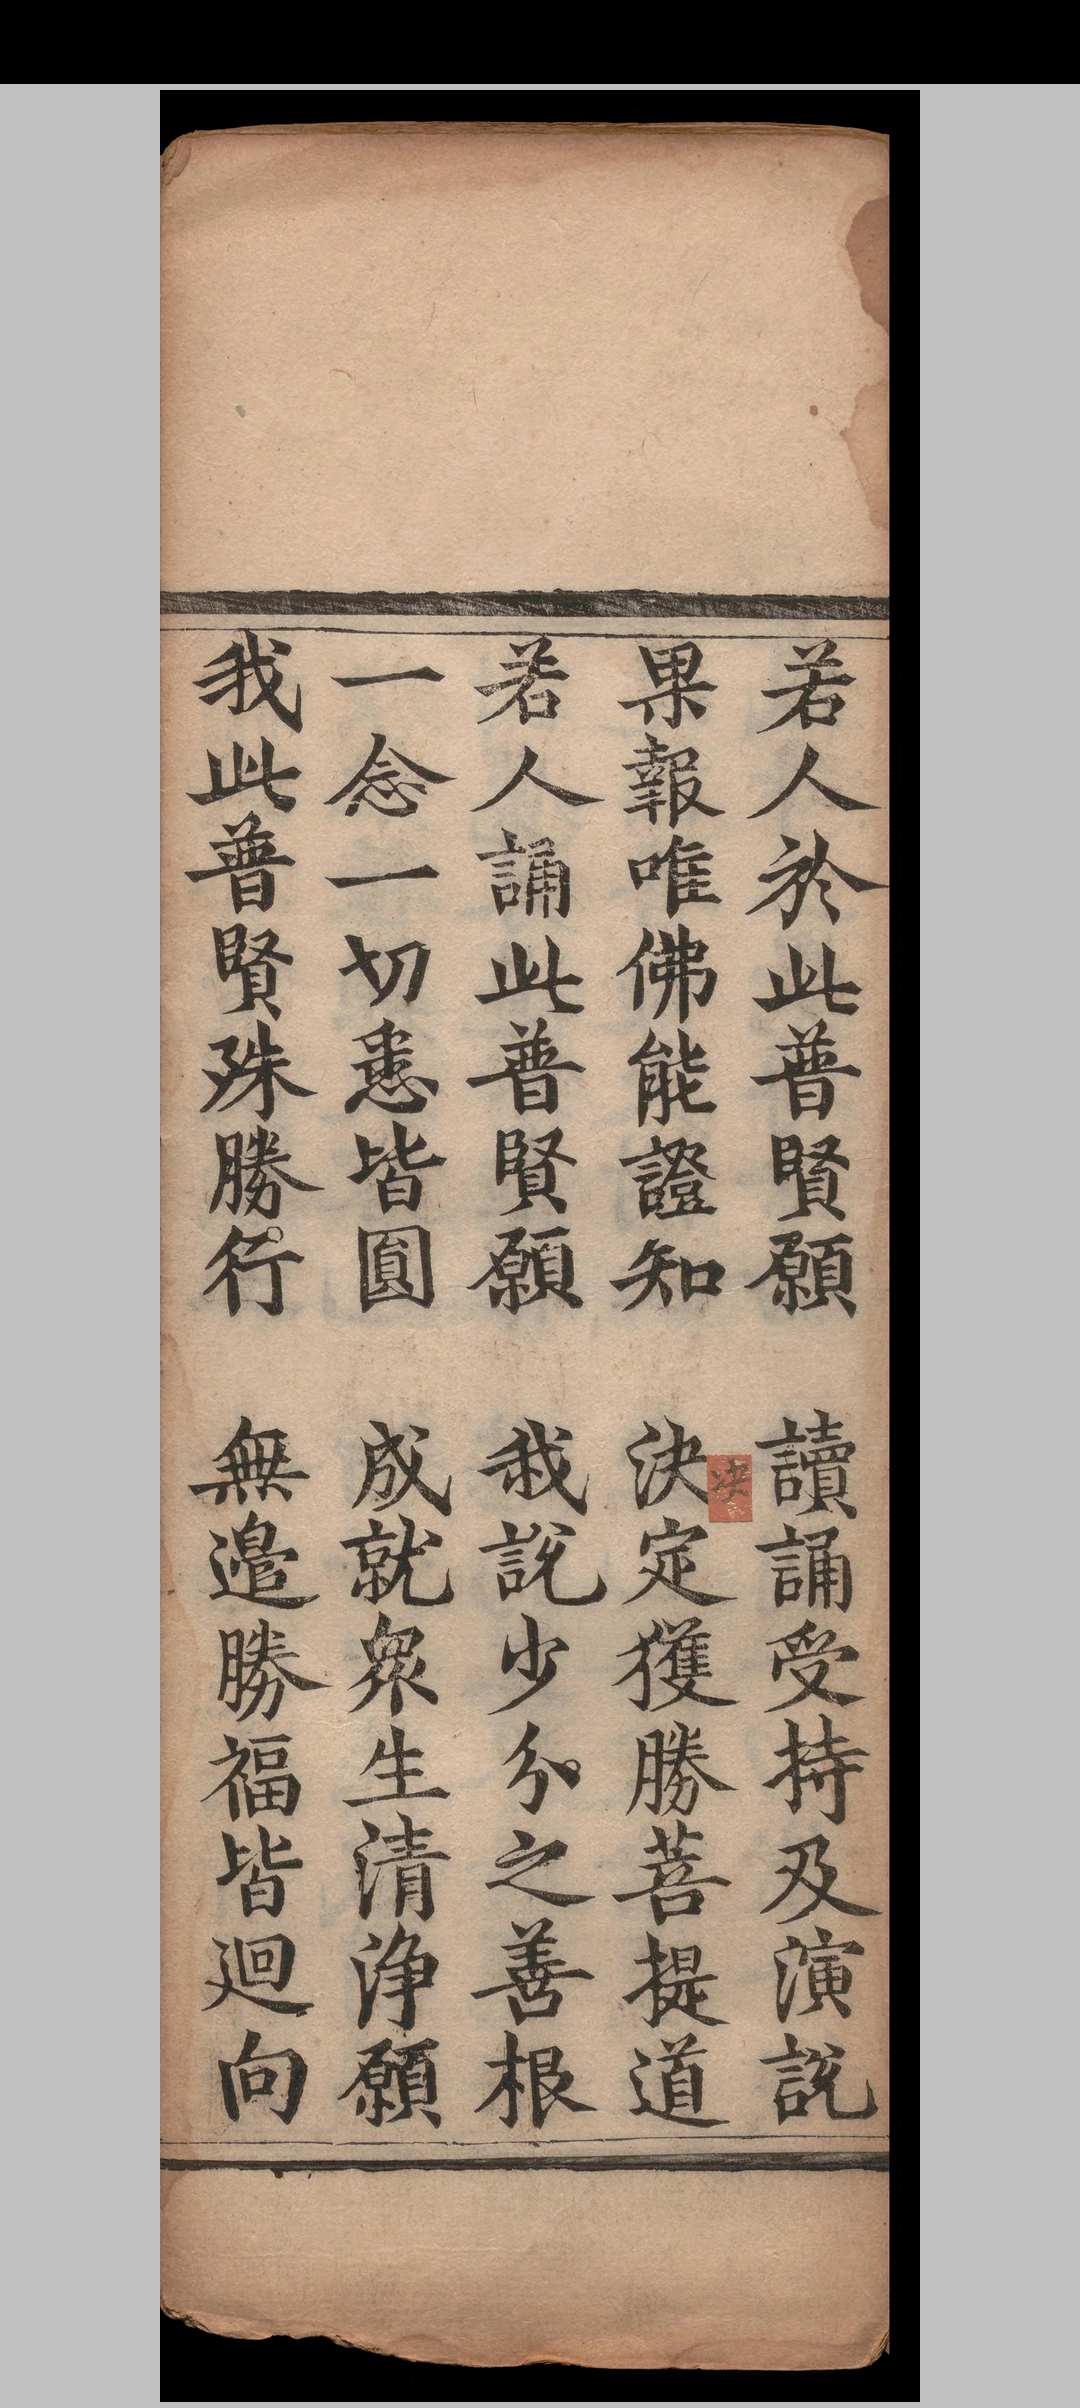 若人於此普賢願　讀誦受持及演說
果報唯佛能證知　決定獲勝菩提道
若人誦此普賢願　我說少分之善根
一念一切悉皆圓　成就衆生清淨願
我此普賢殊勝行　無邊勝福皆迴向